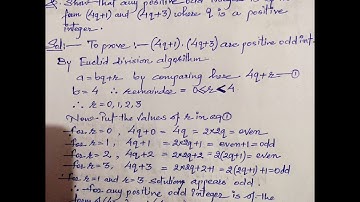 Q. Show that any positive odd integer is of the
form (4q+1) and (4q+3) where q is a positive
integer.
Sol:- To prove :- (4q+1), (4q+3) are positive odd int.
By Euclid division algorithm
a=bq+r by comparing here 4q+r=①
b=4 ∴ remainder = 0≤r<4
∴ r=0,1,2,3
Now Put the values of r in eq①
-for r=0, 4q+0 = 4q = 2×2q = even
-for r=1, 4q+1 = 2×2q+1 = even+1=odd
-for r=2, 4q+2 = 2×2q+2 = 2(2q+1) = even
-for r=3, 4q+3 = 2×2q+2+1 = 2(2q+1)+1=odd
-for r=1 and r=3 solution appears odd.
∴ for any positive odd integer is of the